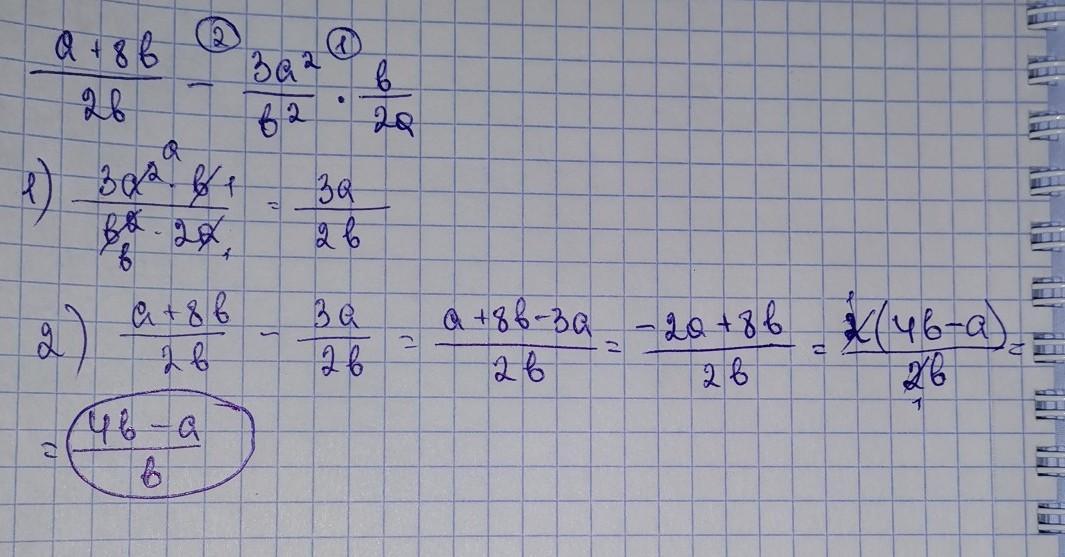 ② ①
(a + 8b)/(2b) - (3a²)/(b²) · b/(2a)
1) (3a² · b)/(b² · 2a) = (3a)/(2b)
2) (a + 8b)/(2b) - (3a)/(2b) = (a + 8b - 3a)/(2b) = (-2a + 8b)/(2b) = (2(4b - a))/(2b) =
= (4b - a)/b